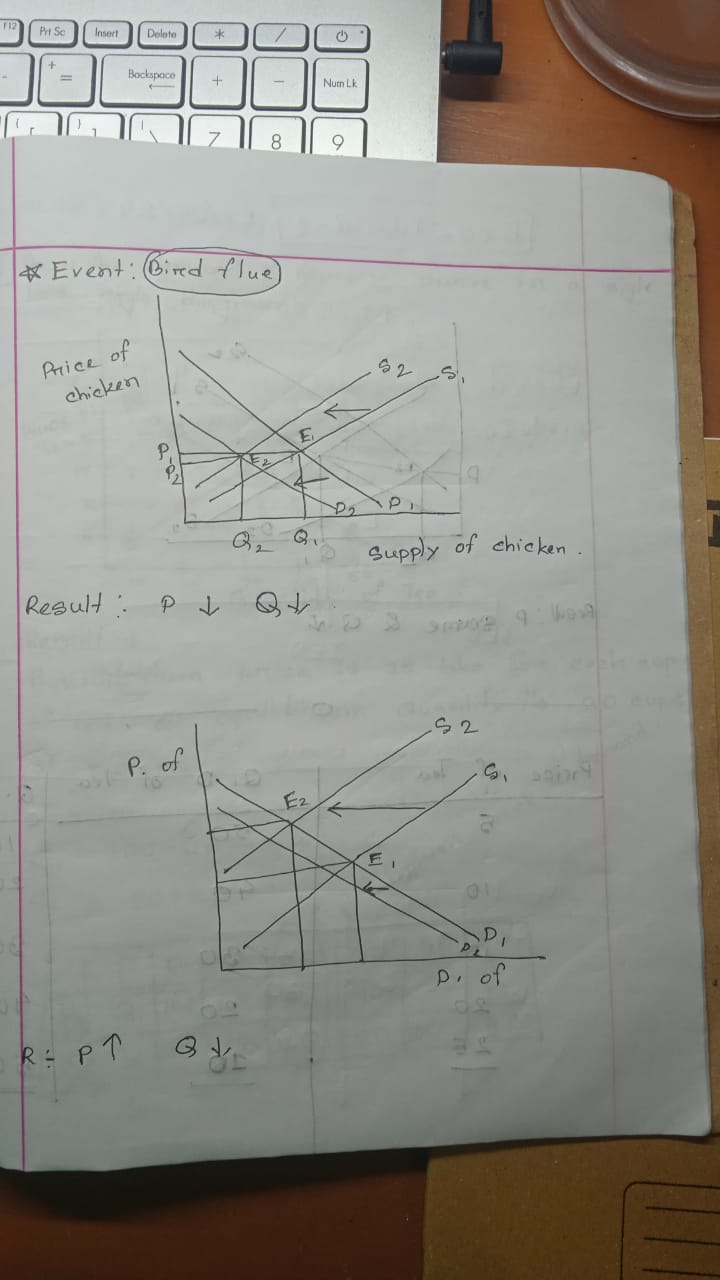 F12 Prt Sc Insert Delete * /
- + = Backspace + - Num Lk
{ [ } ] | \ 7 8 9
☆ Event: Bired flue
Price of
chicken
S2 S1
P1 E1
P2 E2
D2 D1
Q2 Q1
Supply of chicken.
Result: P ↓ Q↓
S2
P. of
S1
E2
E1
D1
D2
D. of
R: P↑ Q↓